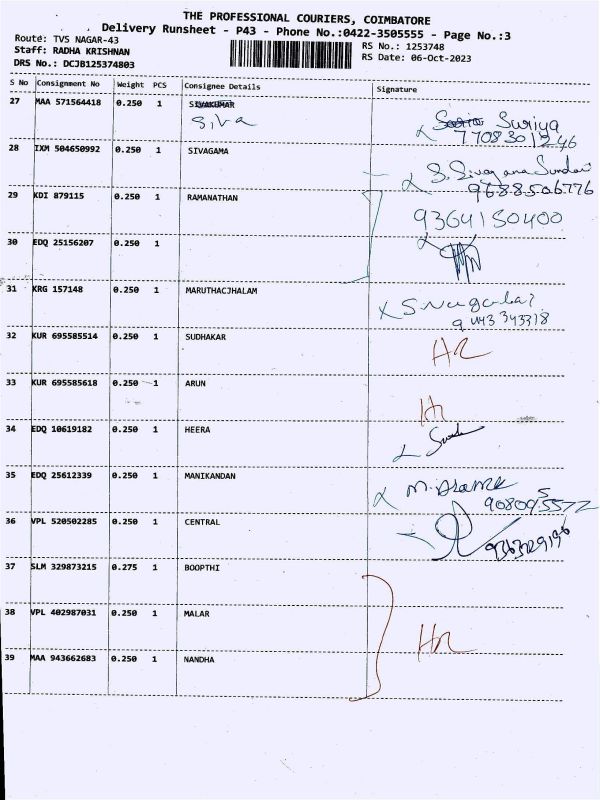 THE PROFESSIONAL COURIERS, COIMBATORE
Delivery Runsheet - P43 - Phone No.:0422-3505555 - Page No.:3
Route: TVS NAGAR-43
RS No.: 1253748
Staff: RADHA KRISHNAN
RS Date: 06-Oct-2023
DRS No.: DCJB125374803
S No Consignment No Weight PCS Consignee Details Signature
27 MAA 571564418 0.250 1 SIVAKUMAR
Siva
Suriya
28 IXM 504650992 0.250 1 SIVAGAMA
S. Sivagama Sundari
9688506776
29 KDI 879115 0.250 1 RAMANATHAN
9364150400
30 EDQ 25156207 0.250 1
31 KRG 157148 0.250 1 MARUTHACJHALAM
9443343318
32 KUR 695585514 0.250 1 SUDHAKAR
33 KUR 695585618 0.250 1 ARUN
34 EDQ 10619182 0.250 1 HEERA
35 EDQ 25612339 0.250 1 MANIKANDAN
36 VPL 520502285 0.250 1 CENTRAL
37 SLM 329873215 0.275 1 BOOPTHI
38 VPL 402987031 0.250 1 MALAR
39 MAA 943662683 0.250 1 NANDHA